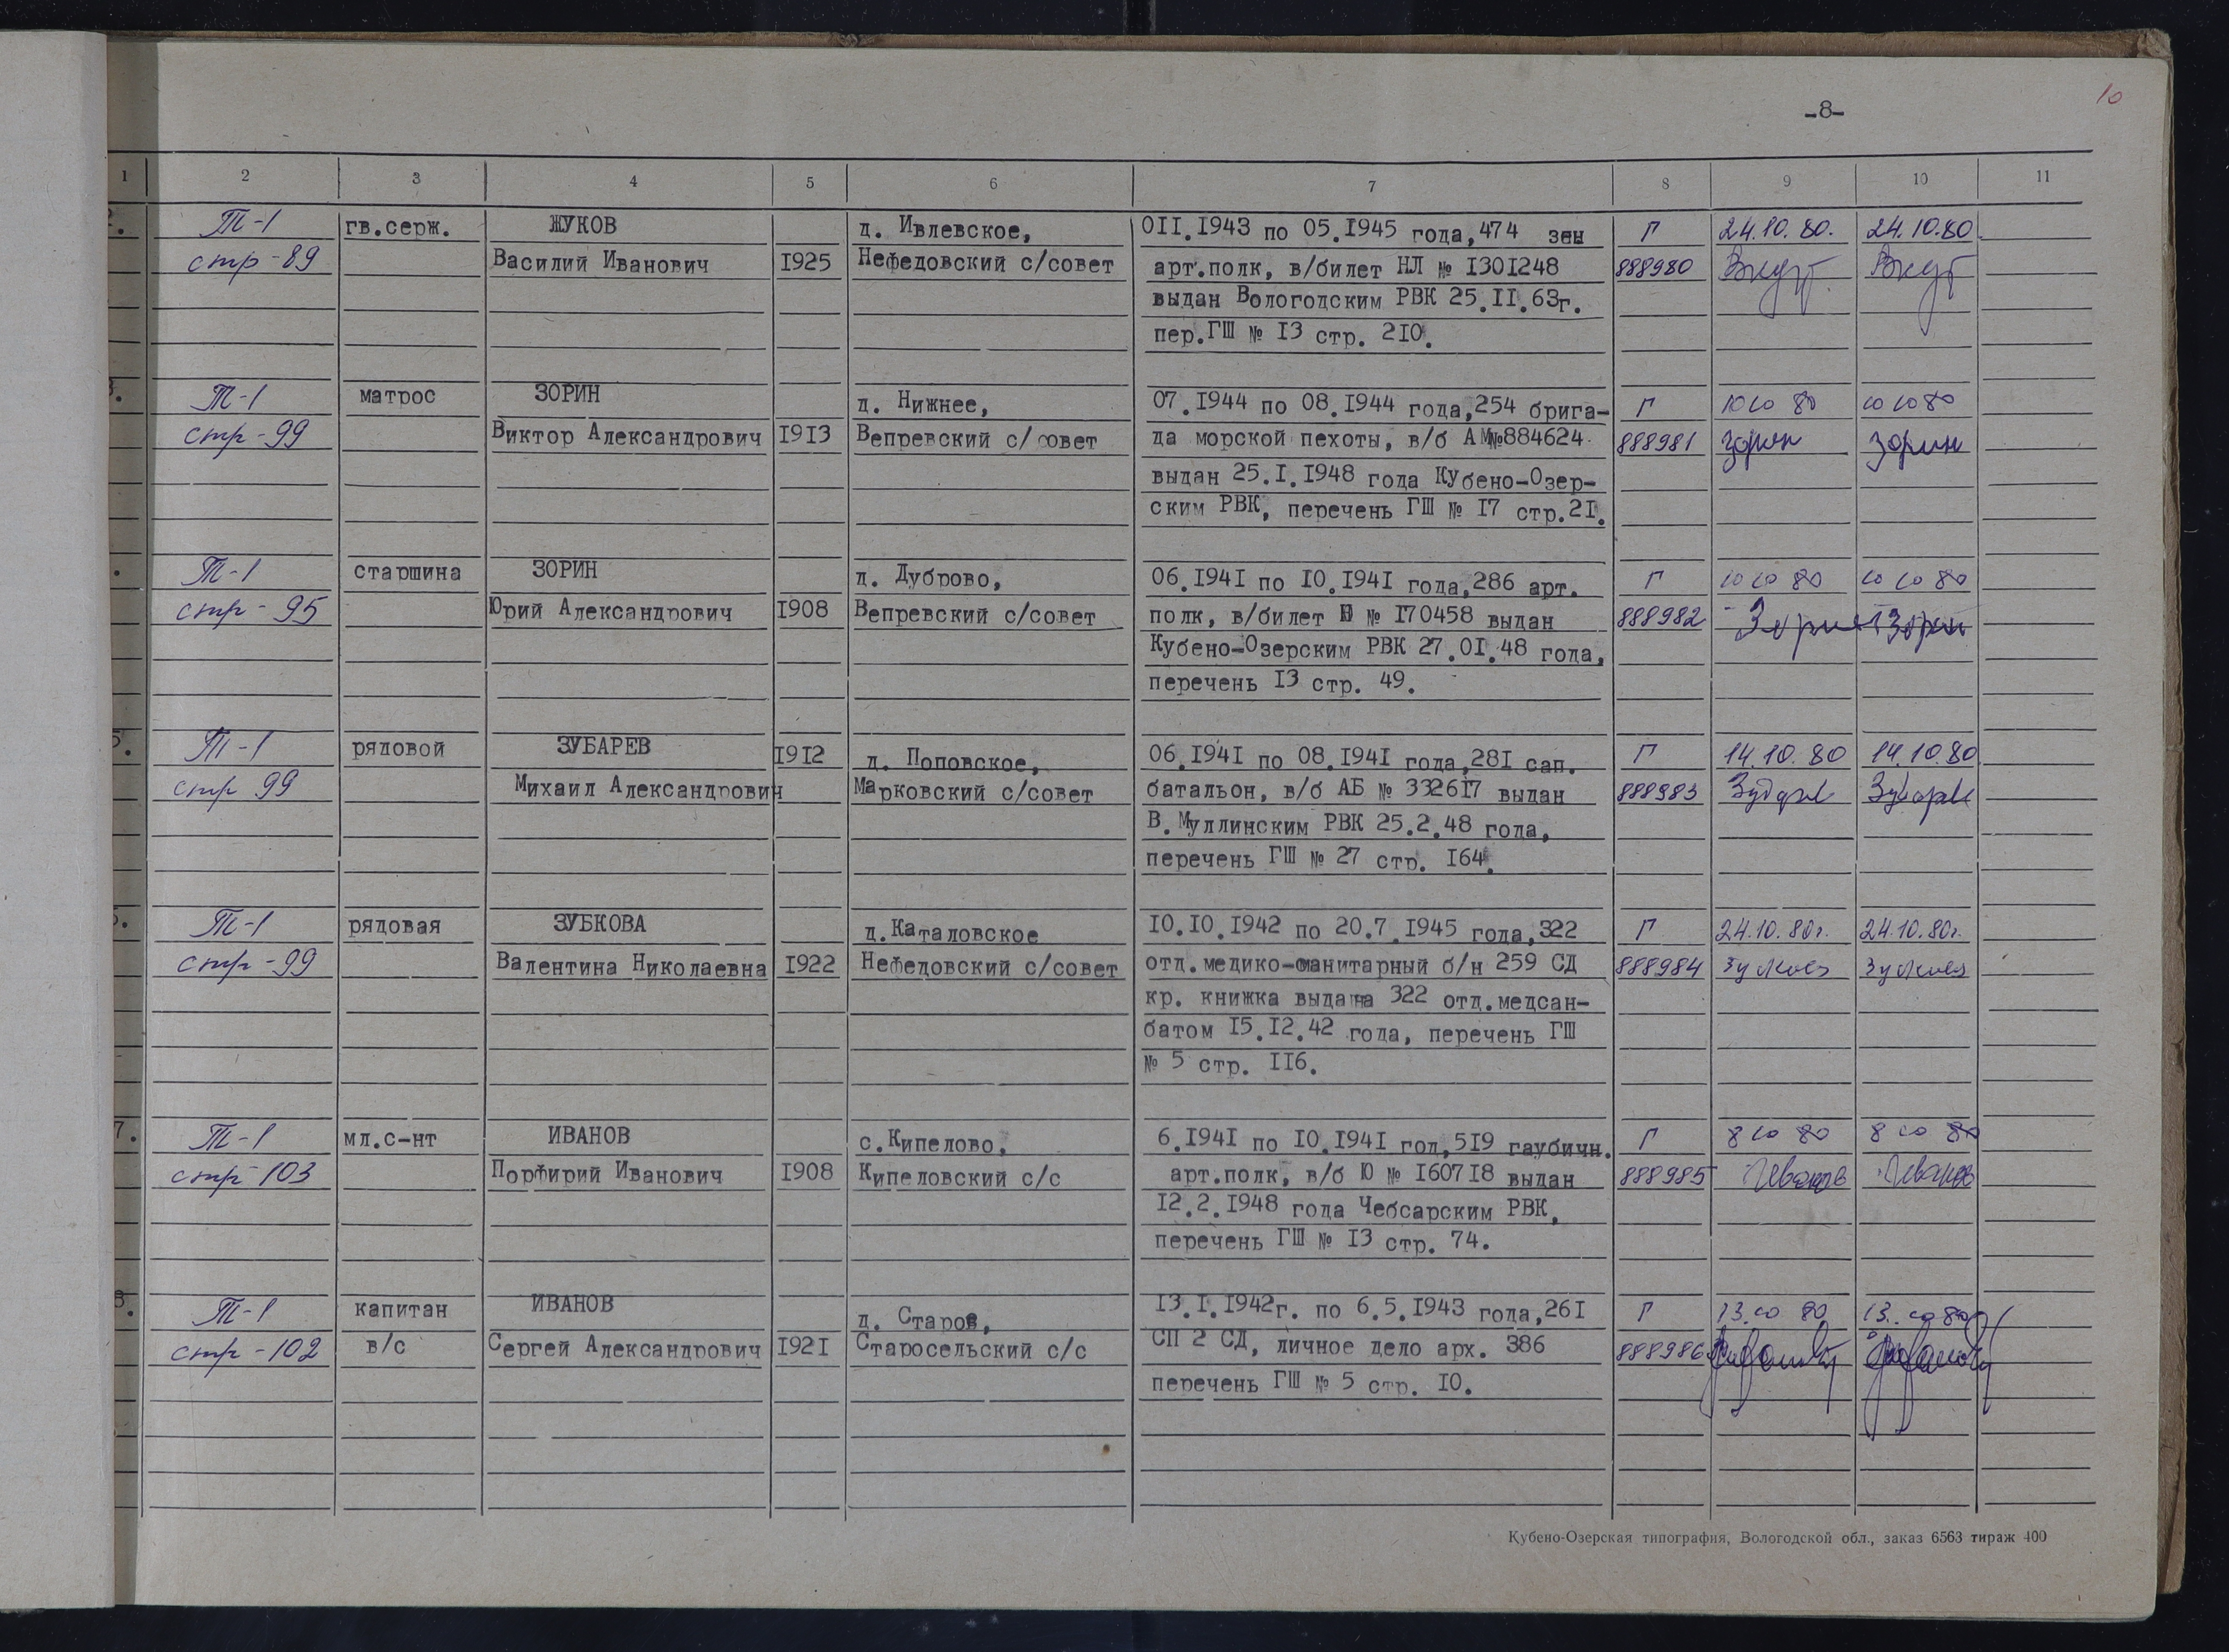 10
-8-
1 2 3 4 5 6 7 8 9 10 11
2. Т-1 гв.серж. ЖУКОВ д. Ивлевское, 0II.I943 по 05.I945 года,474 зен Г 24.10.80. 24.10.80
стр-89 Василий Иванович I925 Нефедовский с/совет арт.полк, в/билет НЛ № I30I248 888980
выдан Вологодским РВК 25.II.63г.
пер.ГШ № I3 стр. 2I0.
3. Т-1 матрос ЗОРИН д. Нижнее, 07.I944 по 08.I944 года,254 брига- Г 10 10 80 10 10 80
стр-99 Виктор Александрович I9I3 Вепревский с/совет да морской пехоты, в/б АМ№884624 888981 Зорин Зорин
выдан 25.I.I948 года Кубено-Озер-
ским РВК, перечень ГШ № I7 стр.2I.
. Т-1 старшина ЗОРИН д. Дуброво, 06.I94I по I0.I94I года,286 арт. Г 10 10 80 10 10 80
стр-95 Юрий Александрович I908 Вепревский с/совет полк, в/билет Ю № I70458 выдан 888982 Зорин Зорин
Кубено-Озерским РВК 27.0I.48 года,
перечень I3 стр. 49.
5. Т-1 рядовой ЗУБАРЕВ I9I2 д. Поповское, 06.I94I по 08.I94I года,28I сап. Г 14.10.80 14.10.80
стр 99 Михаил Александрович Марковский с/совет батальон, в/б АБ № 3326I7 выдан 888983 Зубарев Зубарев
В.Муллинским РВК 25.2.48 года,
перечень ГШ № 27 стр. I64.
6. Т-1 рядовая ЗУБКОВА д.Каталовское I0.I0.I942 по 20.7.I945 года,322 Г 24.10.80г. 24.10.80г.
стр-99 Валентина Николаевна I922 Нефедовский с/совет отд.медико-санитарный б/н 259 СД 888984
кр. книжка выдана 322 отд.медсан-
батом I5.I2.42 года, перечень ГШ
№ 5 стр. II6.
7. Т-1 мл.с-нт ИВАНОВ с.Кипелово, 6.I94I по I0.I94I год,5I9 гаубичн. Г 8 10 80 8 10 80
стр 103 Порфирий Иванович I908 Кипеловский с/с арт.полк, в/б Ю № I607I8 выдан 888985 Иванов Иванов
I2.2.I948 года Чебсарским РВК,
перечень ГШ № I3 стр. 74.
8. Т-1 капитан ИВАНОВ д. Старое, I3.I.I942г. по 6.5.I943 года,26I Г 13.10 80 13.10 80
стр-102 в/с Сергей Александрович I92I Старосельский с/с СП 2 СД, личное дело арх. 386 888986
перечень ГШ № 5 стр. I0.
Кубено-Озерская типография, Вологодской обл., заказ 6563 тираж 400